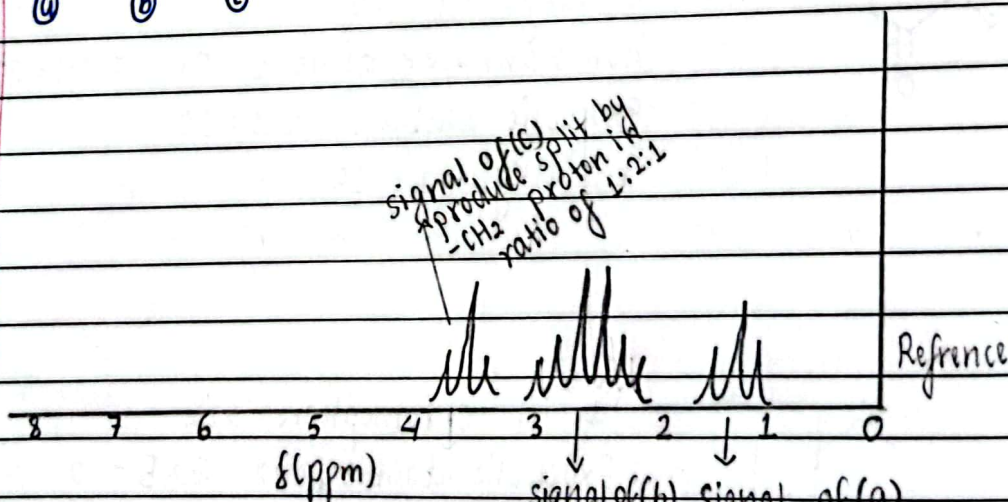 (a) (b) (c)
signal of (C)
produce split by
-CH2 proton in
ratio of 1:2:1
Refrence
8 7 6 5 4 3 2 1 0
δ(ppm)
signal of (b) signal of (a)